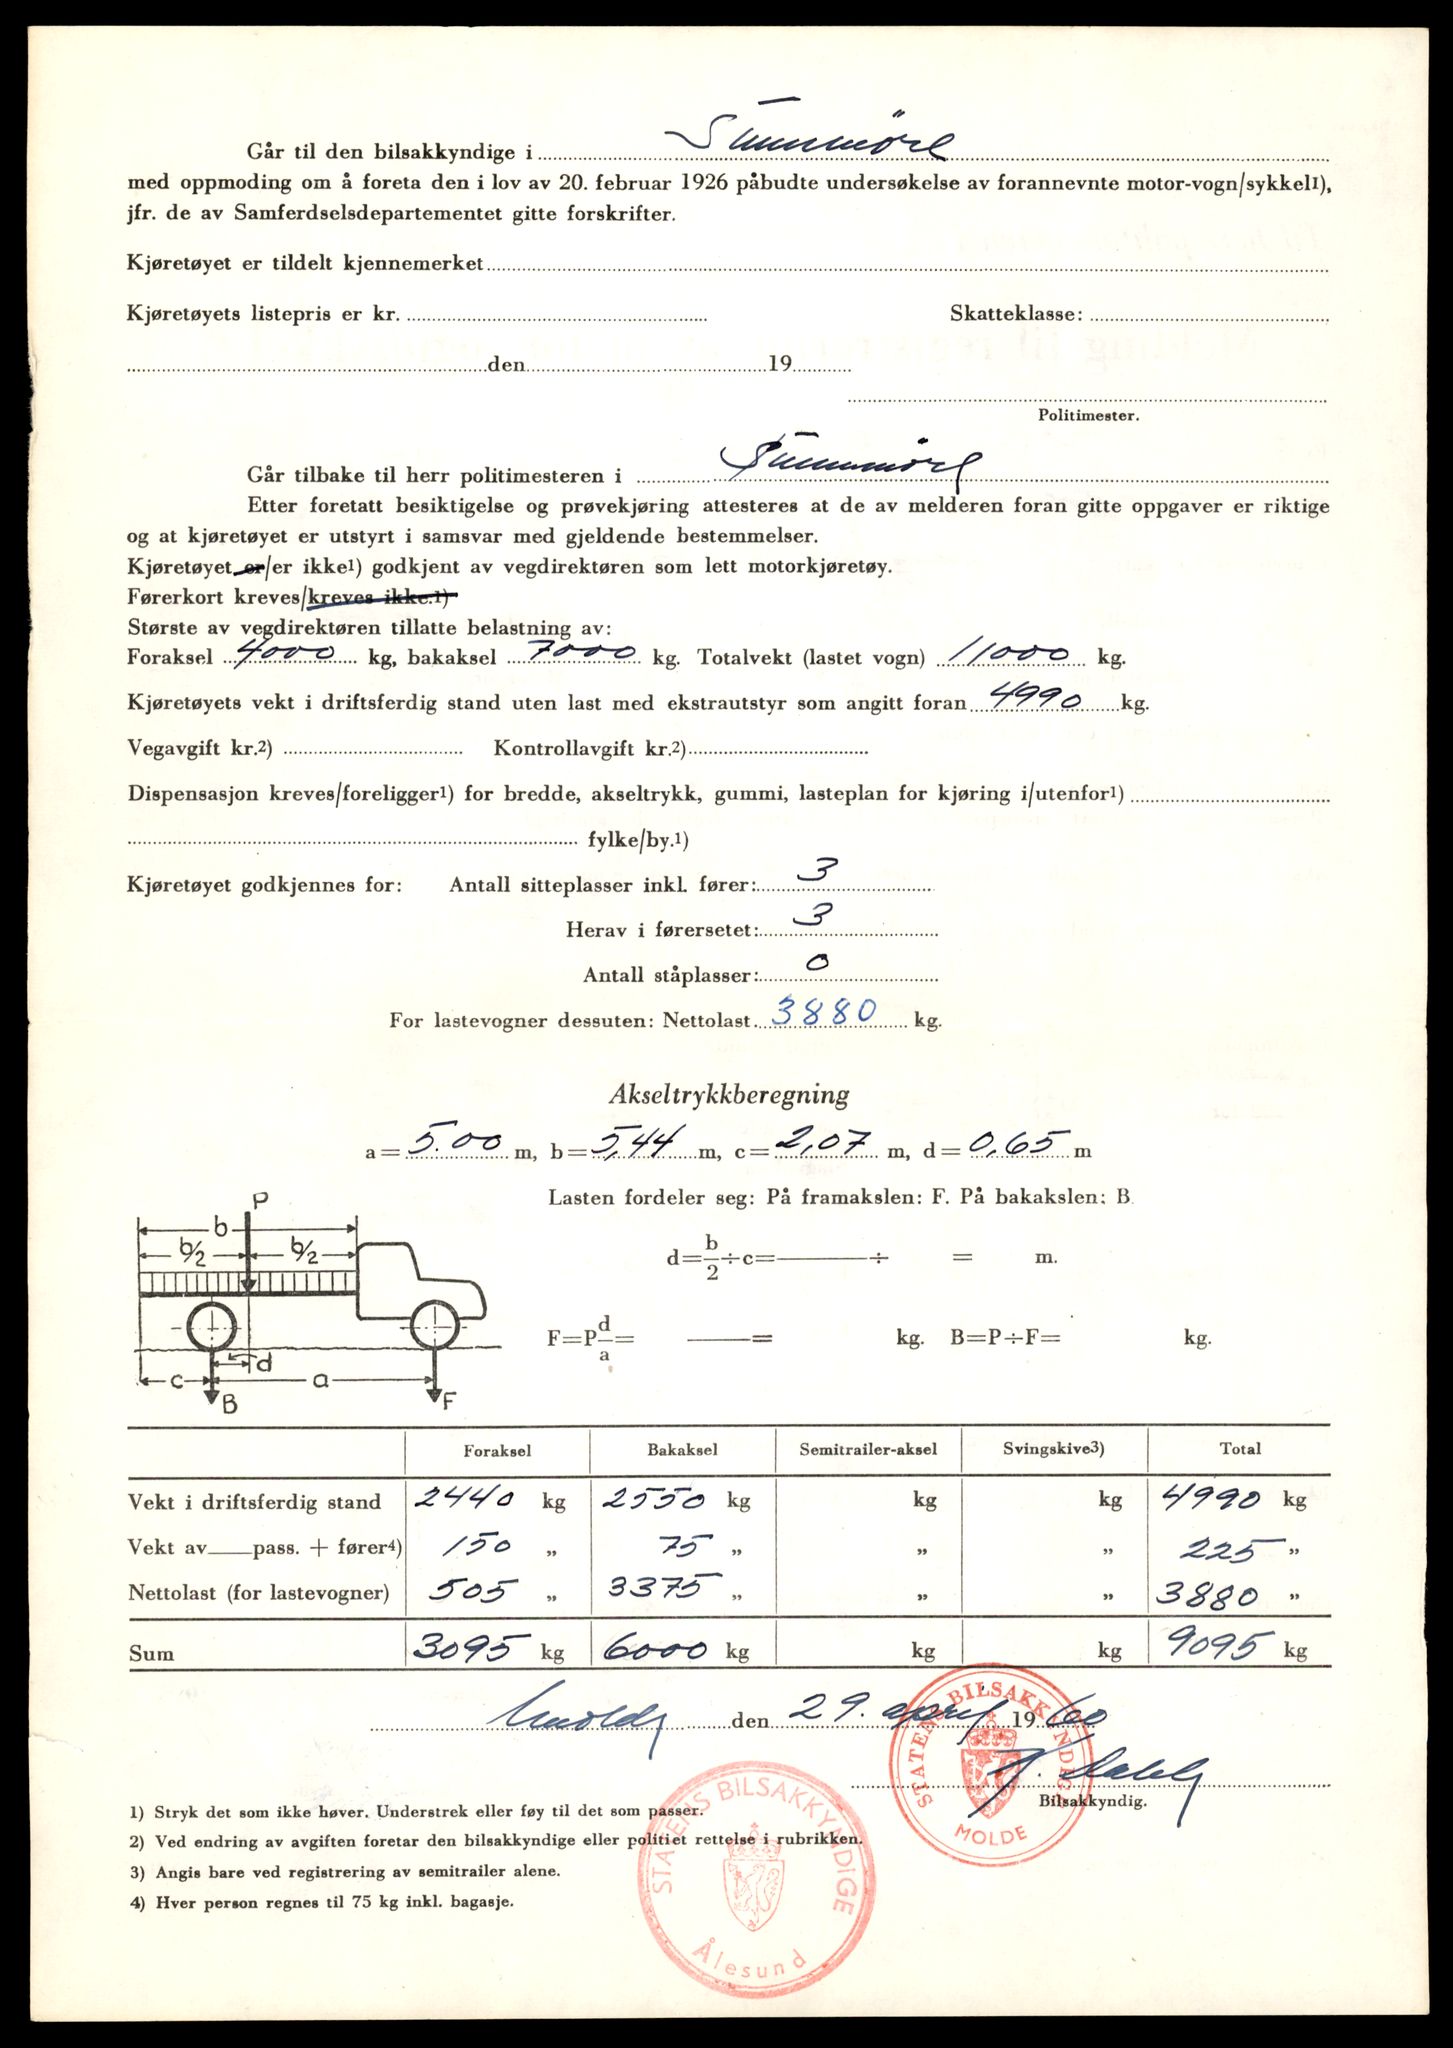 Går til den bilsakkyndige i Sunnmøre
med oppmoding om å foreta den i lov av 20. februar 1926 påbudte undersøkelse av forannevnte motor-vogn/sykkel1),
jfr. de av Samferdselsdepartementet gitte forskrifter.
Kjøretøyet er tildelt kjennemerket
Kjøretøyets listepris er kr. Skatteklasse:
den 19
Politimester.
Går tilbake til herr politimesteren i Sunnmøre
Etter foretatt besiktigelse og prøvekjøring attesteres at de av melderen foran gitte oppgaver er riktige
og at kjøretøyet er utstyrt i samsvar med gjeldende bestemmelser.
Kjøretøyet er/er ikke1) godkjent av vegdirektøren som lett motorkjøretøy.
Førerkort kreves/kreves ikke.1)
Største av vegdirektøren tillatte belastning av:
Foraksel 4000 kg, bakaksel 7000 kg. Totalvekt (lastet vogn) 11000 kg.
Kjøretøyets vekt i driftsferdig stand uten last med ekstrautstyr som angitt foran 4990 kg.
Vegavgift kr.2) Kontrollavgift kr.2)
Dispensasjon kreves/foreligger1) for bredde, akseltrykk, gummi, lasteplan for kjøring i/utenfor1)
fylke/by.1)
Kjøretøyet godkjennes for: Antall sitteplasser inkl. fører: 3
Herav i førersetet: 3
Antall ståplasser: 0
For lastevogner dessuten: Nettolast 3880 kg.
Akseltrykkberegning
a = 5.00 m, b = 5,44 m, c = 2,07 m, d = 0,65 m
Lasten fordeler seg: På framakslen: F. På bakakslen: B
d = b/2 ÷ c = ÷ = m.
F = P d/a = = kg. B = P ÷ F = kg.
P
b
b/2 b/2
d
c a
B F
Foraksel Bakaksel Semitrailer-aksel Svingskive3) Total
Vekt i driftsferdig stand 2440 kg 2550 kg kg kg 4990 kg
Vekt av pass. + fører4) 150 „ 75 „ „ „ 225 „
Nettolast (for lastevogner) 505 „ 3375 „ „ „ 3880 „
Sum 3095 kg 6000 kg kg kg 9095 kg
Molde den 29. april 1960
Bilsakkyndig.
STATENS BILSAKKYNDIGE MOLDE
STATENS BILSAKKYNDIGE Ålesund
1) Stryk det som ikke høver. Understrek eller føy til det som passer.
2) Ved endring av avgiften foretar den bilsakkyndige eller politiet rettelse i rubrikken.
3) Angis bare ved registrering av semitrailer alene.
4) Hver person regnes til 75 kg inkl. bagasje.